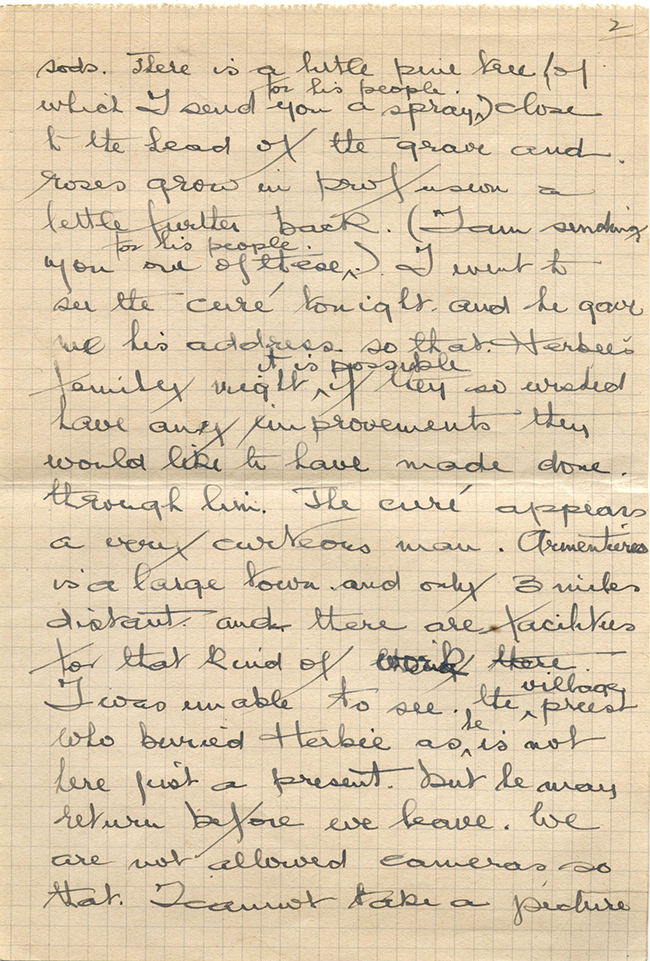 2
sods. There is a little pine tree (of
for his people.
which I send you a spray,) close
to the head of the grave and
roses grow in profusion a
little further back. (I am sending
for his people.
you one of these.) I went to
see the curé tonight. and he gave
me his address so that Herbie's
it is possible
family might if they so wished
have any improvements they
would like to have made done.
through him. The curé appears
a very curteous man. Armentières
is a large town. and only 3 miles
distant. and there are facilities
for that kind of work there.
village
I was unable to see. the priest
he
who buried Herbie as is not
here just a present. but he may
return before we leave. We
are not allowed cameras so
that. I cannot take a picture